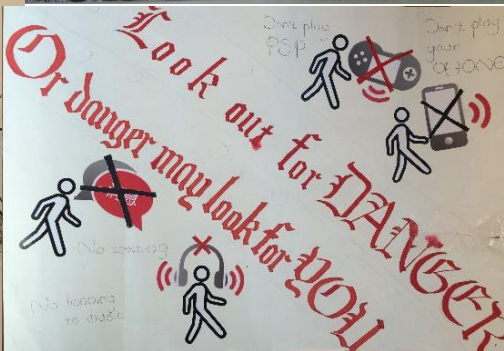 Look out for DANGER
Or danger may look for YOU
Don't play
PSP
Don't play
your
No texting
No
to music